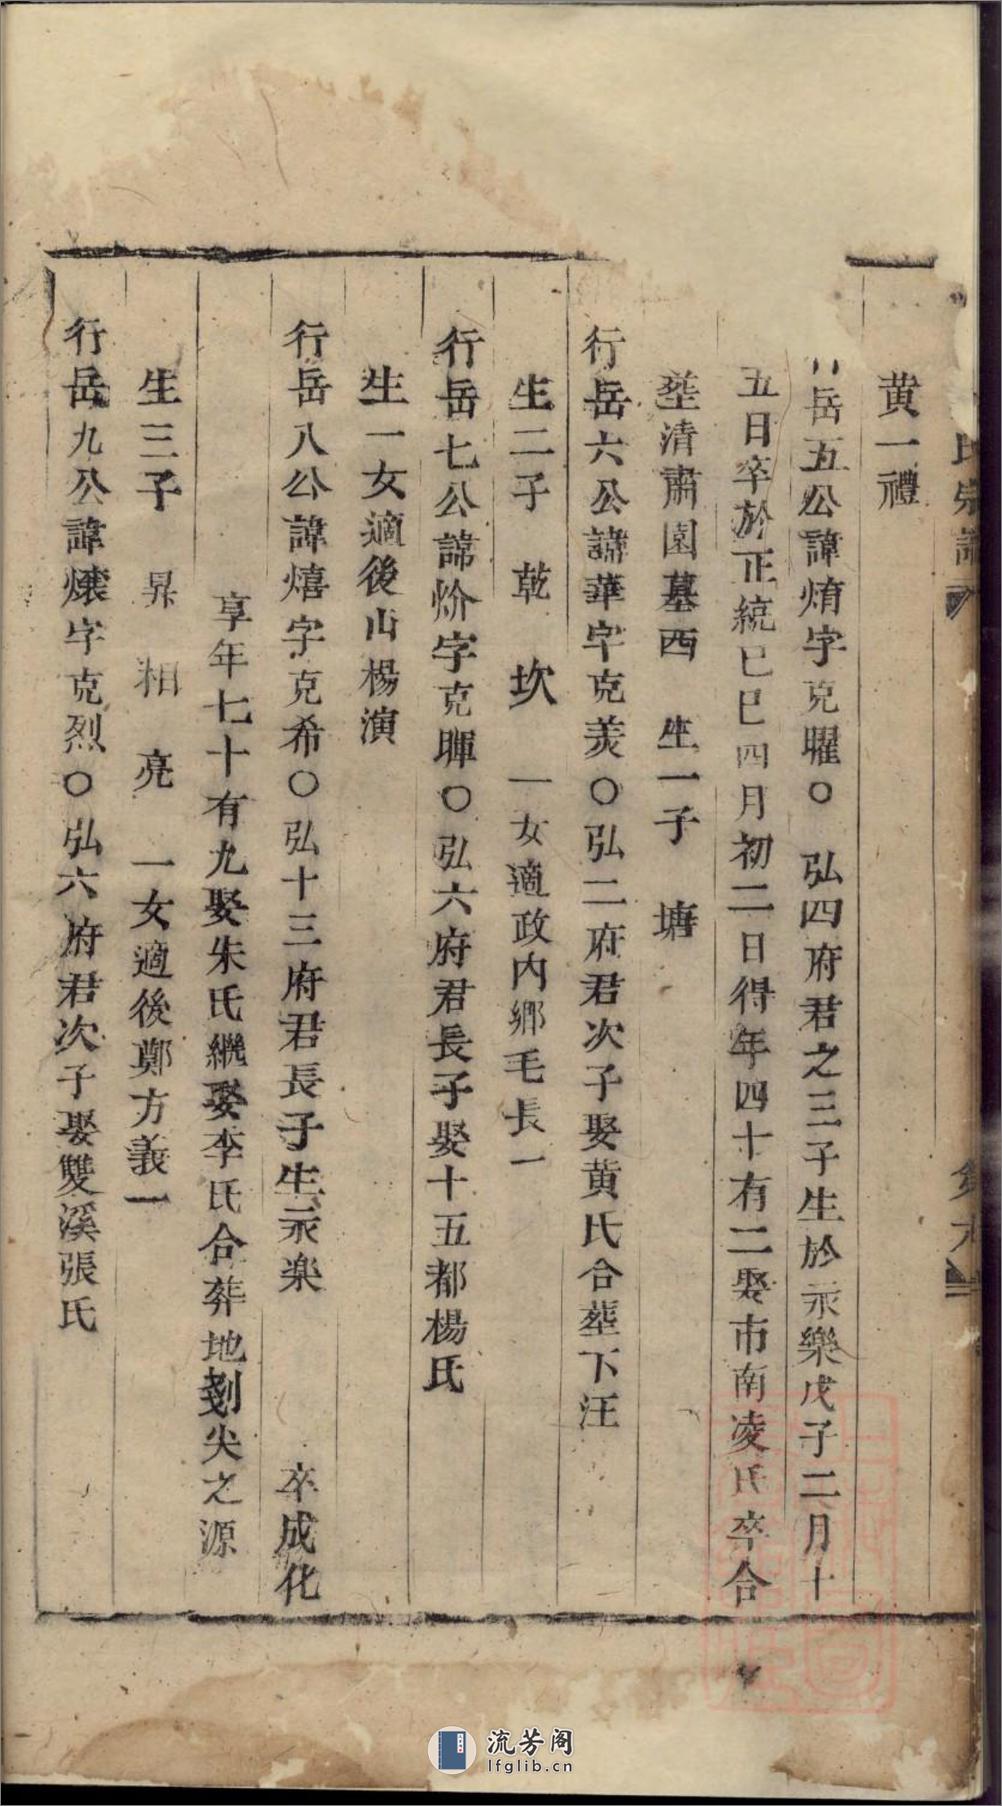 氏宗譜
黄一禮
行岳五公諱焴字克曜○ 弘四府君之三子生於永樂戊子二月十
五日卒於正統己巳四月初二日得年四十有二娶市南凌氏卒合
塟清肅園墓西 生一子 塘
行岳六公諱華字克美○弘二府君次子娶黄氏合塟下汪
生二子 乾 坎 一女適政内鄉毛長一
行岳七公諱炌字克暉○弘六府君長子娶十五都楊氏
生一女適後山楊演
行岳八公諱熺字克希○弘十三府君長子生永楽 卒成化
享年七十有九娶朱氏継娶李氏合葬地剗尖之源
生三子 昇 相 亮 一女適後鄭方義一
行岳九公諱爃字克烈○弘六府君次子娶雙溪張氏
流芳阁
lfglib.cn